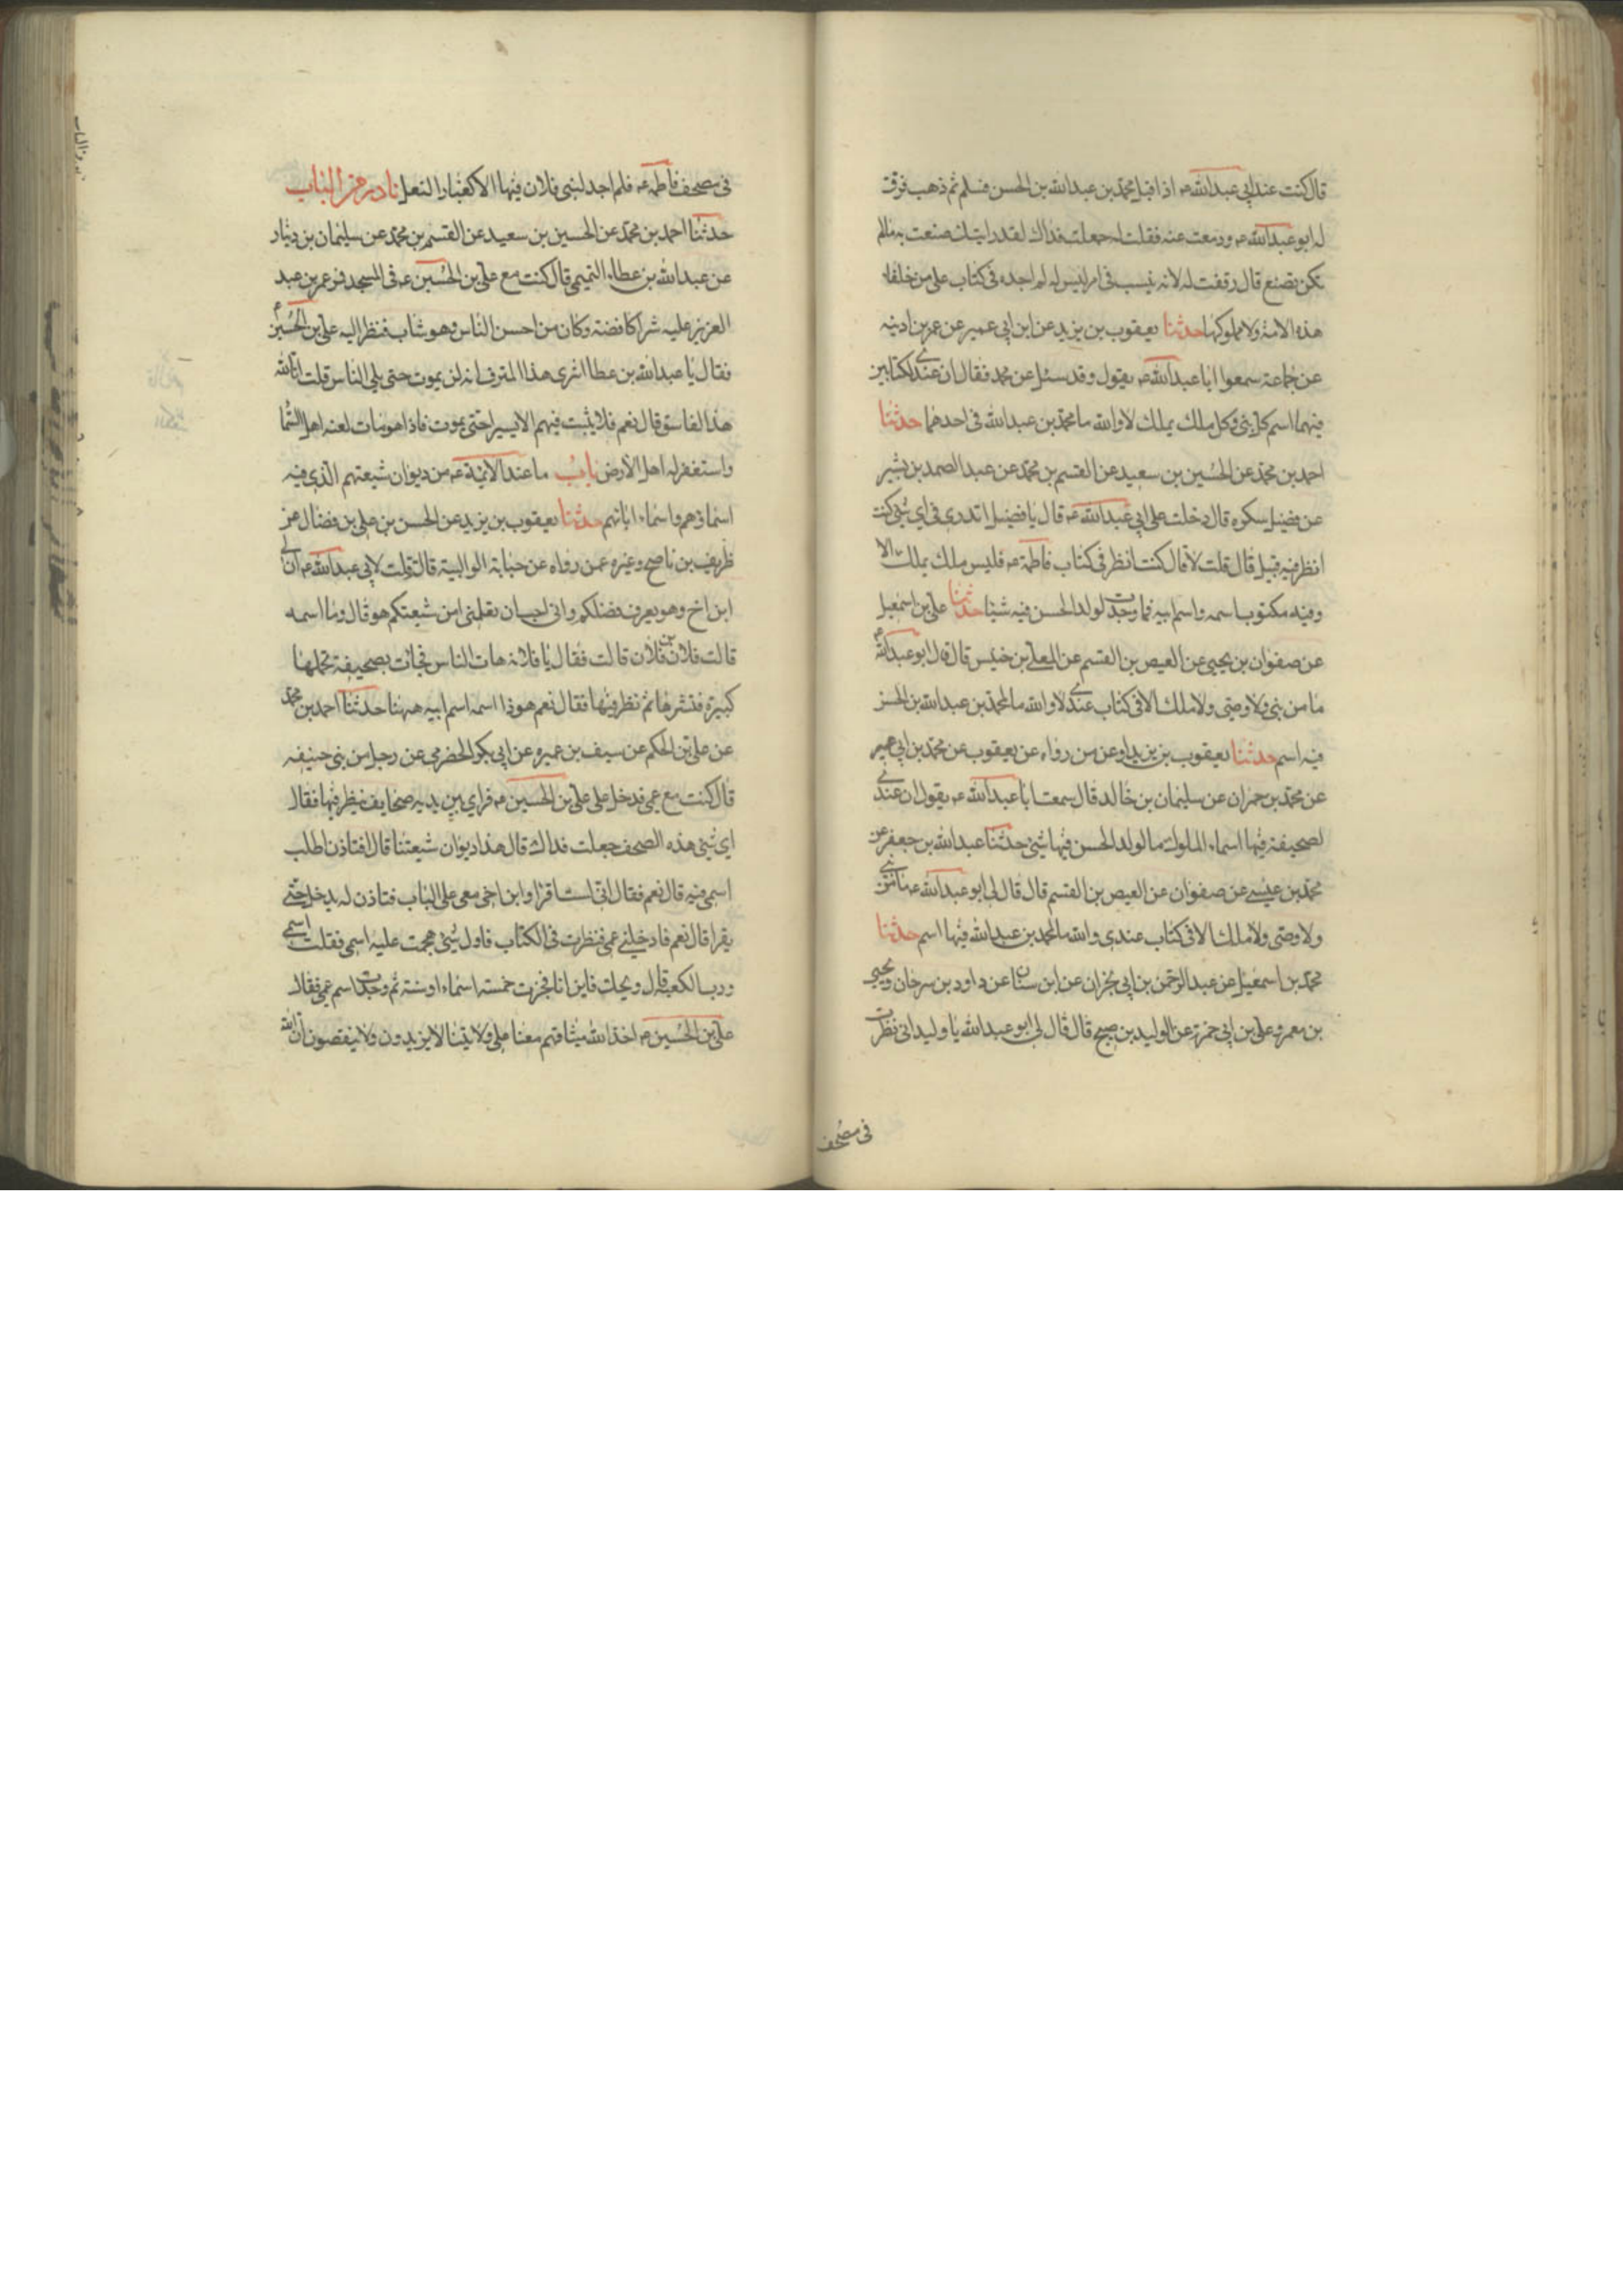 قال كنت عند ابي عبدالله عه اذا اقبل محمد بن عبدالله بن الحسن فسلم ثم ذهب فرق
له ابو عبدالله عه ودمعت عينه فقلت له جعلت فداك لقد رايتك صنعت به ما لم
تكن تصنع قال رققت له لانه ينسب في امر ليس له لم اجده في كتاب علي من خلفاء
هذه الامة ولا ملوكها حدثنا يعقوب بن يزيد عن ابن ابي عمير عن عمر بن اذينه
عن جماعة سمعوا ابا عبدالله عه يقول وقد سئل عن محمد فقال ان عندي لكتابين
فيهما اسم كل نبي وكل ملك يملك لا والله ما محمد بن عبدالله في احدهما حدثنا
احمد بن محمد عن الحسين بن سعيد عن القسم بن محمد عن عبد الصمد بن بشير
عن فضيل سكره قال دخلت على ابي عبدالله عه قال يا فضيل اتدري في اي شئ كنت
انظر فيه قبل قال قلت لا قال كنت انظر في كتاب فاطمة عه فليس ملك يملك الا
وفيه مكتوب اسمه واسم ابيه فما وجدت لولد الحسن فيه شيئا حدثنا علي بن اسمعيل
عن صفوان بن يحيى عن العيص بن القسم عن المعلى بن خنيس قال قال ابو عبدالله ع
ما من نبي ولا وصي ولا ملك الا في كتاب عندي لا والله ما لمحمد بن عبدالله بن الحسن
فيه اسم حدثنا يعقوب بن يزيد او عمن رواه عن يعقوب عن محمد بن ابي عمير
عن محمد بن حمران عن سليمان بن خالد قال سمعت ابا عبدالله عه يقول ان عندي
لصحيفة فيها اسماء الملوك ما لولد الحسن فيها شئ حدثنا عبدالله بن جعفر عن
محمد بن عيسى عن صفوان عن العيص بن القسم قال قال لي ابو عبدالله عه ما من نبي
ولا وصي ولا ملك الا في كتاب عندي والله ما لمحمد بن عبدالله فيها اسم حدثنا
محمد بن اسمعيل عن عبد الرحمن بن ابي نجران عن ابن سنان عن داود بن سرحان ويحيى
بن معمر وعلي بن ابي حمزة عن الوليد بن صبيح قال قال لي ابو عبدالله يا وليد اني نظرت
في مصحف
في مصحف فاطمه عه فلم اجد لبني فلان فيها الا كغبار النعل نادر من الباب
حدثنا احمد بن محمد عن الحسين بن سعيد عن القسم بن محمد عن سليمان بن دينار
عن عبدالله بن عطاء التميمي قال كنت مع علي بن الحسين عه في المسجد فمر عمر بن عبد
العزيز عليه شراكا فضة وكان من احسن الناس وهو شاب فنظر اليه علي بن الحسين ع
فقال يا عبدالله بن عطا اترى هذا المترف انه لن يموت حتى يلي الناس قلت انا لله
هذا الفاسق قال نعم فلا يلبث فيهم الا يسيرا حتى يموت فاذا هو مات لعنه اهل السما
واستغفر له اهل الارض باب ما عند الائمة عه من ديوان شيعتهم الذي فيه
اسماؤهم واسماء ابائهم حدثنا يعقوب بن يزيد عن الحسن بن علي بن فضال عن
ظريف بن ناصح وغيره عمن رواه عن حبابة الوالبية قالت قلت لابي عبدالله عه ان لي
ابن اخ وهو يعرف فضلكم واني احب ان تعلمني امن شيعتكم هو قال وما اسمه
قالت فلان بن فلان قالت فقال يا فلانه هات الناس فجاءت بصحيفة تحملها
كبيرة فنشرها ثم نظر فيها فقال نعم هو ذا اسمه اسم ابيه ههنا حدثنا احمد بن محمد
عن علي بن الحكم عن سيف بن عميره عن ابي بكر الحضرمي عن رجل من بني حنيفه
قال كنت مع عمي فدخل على علي بن الحسين عه فراي بين يديه صحايف ينظر فيها فقال
اي شئ هذه الصحف جعلت فداك قال هذا ديوان شيعتنا قال افتاذن اطلب
اسمي فيه قال نعم فقال اني لست اقرا وابن اخي معي على الباب فتاذن له يدخل حتى
يقرا قال نعم فادخلني عمي فنظرت في الكتاب فاول شئ هجمت عليه اسمي فقلت اسمي
ورب الكعبة قال ويحك فاين انا فجزت خمسة اسماء او ستة ثم وجدت اسم عمي فقال
علي بن الحسين عه اخذ الله ميثاقهم معنا على ولايتنا لا يزيدون ولا ينقصون ان الله